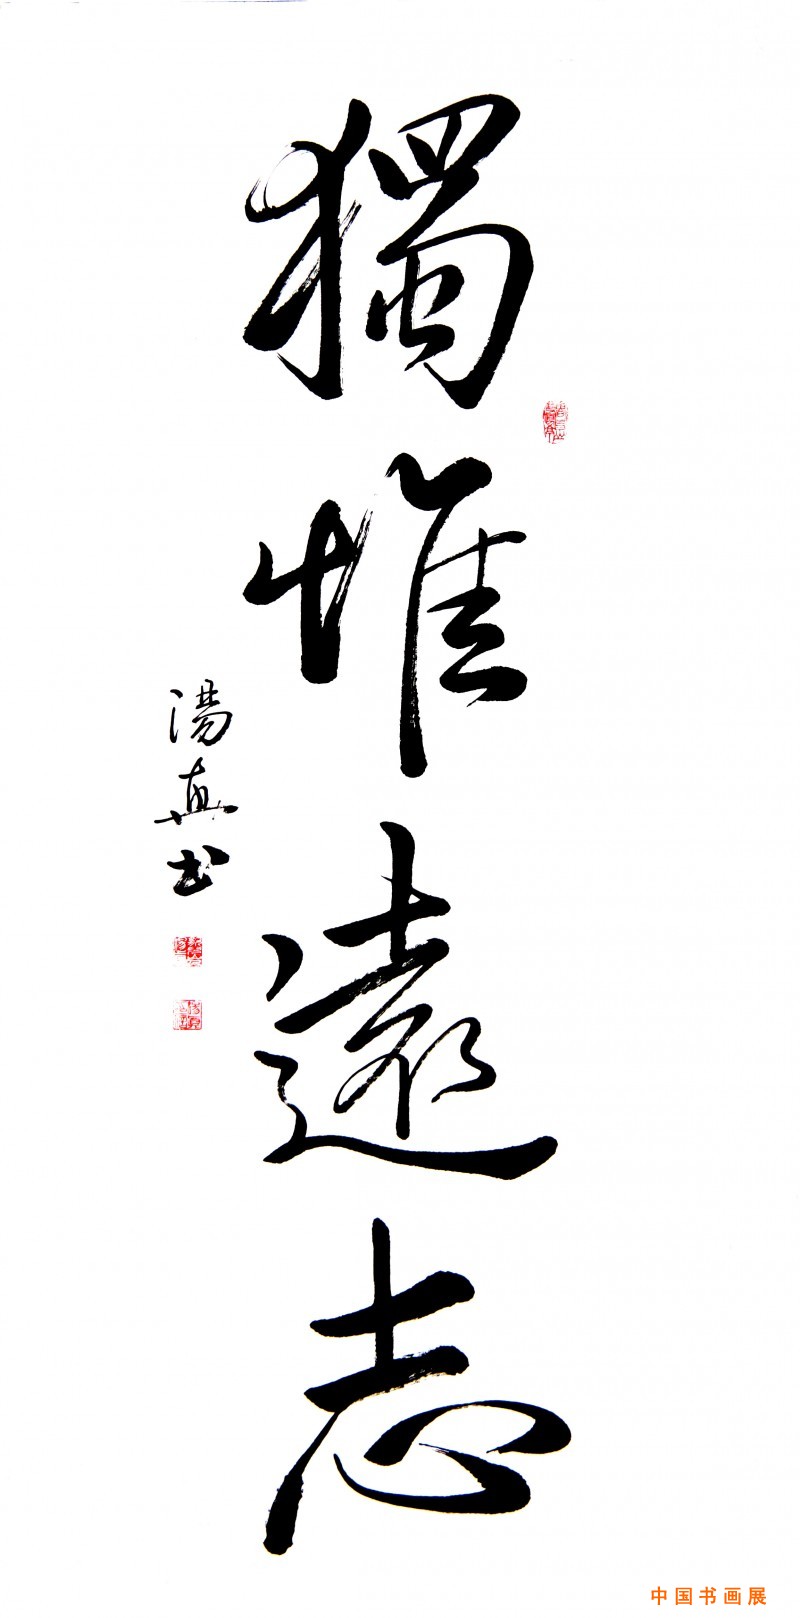 獨惟遠志
湯真书
中国书画展